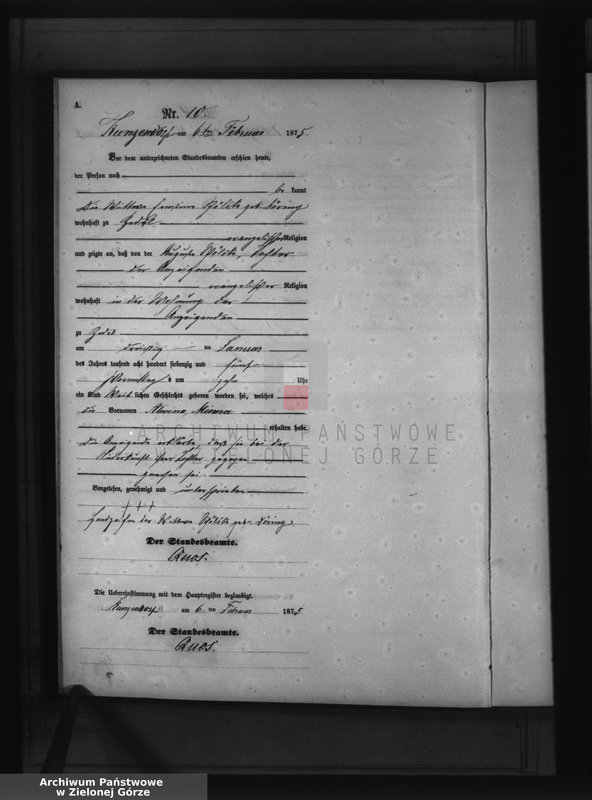 A.
Nr. 10.
Kunzendorf am 6ten Februar 1875.
Vor dem unterzeichneten Standesbeamten erschien heute,
der Person nach
be kannt
die Wittwe geb. Döring
wohnhaft zu
evangelischer Religion
und zeigte an, daß von der Auguste Tochter
der Anzeigenden
evangelischer Religion
wohnhaft in der Wohnung der
Anzeigenden
zu
am ten Januar
des Jahres tausend acht hundert siebenzig und fünf
Vormittags um zehn Uhr
ein Kind weib lichen Geschlechts geboren worden sei, welches
die Vornamen
erhalten habe.
die Anzeigende erklärte, daß sie bei der
Niederkunft ihrer Tochter zugegen
gewesen sei.
Vorgelesen, genehmigt und unterschrieben
+ + +
Handzeichen der Wittwe geb. Döring
Der Standesbeamte.
Quos.
Die Uebereinstimmung mit dem Hauptregister beglaubigt.
Kunzendorf am 6 ten Februar 1875.
Der Standesbeamte.
Quos.
ARCHIWUM PAŃSTWOWE
W ZIELONEJ GÓRZE
Archiwum Państwowe
w Zielonej Górze